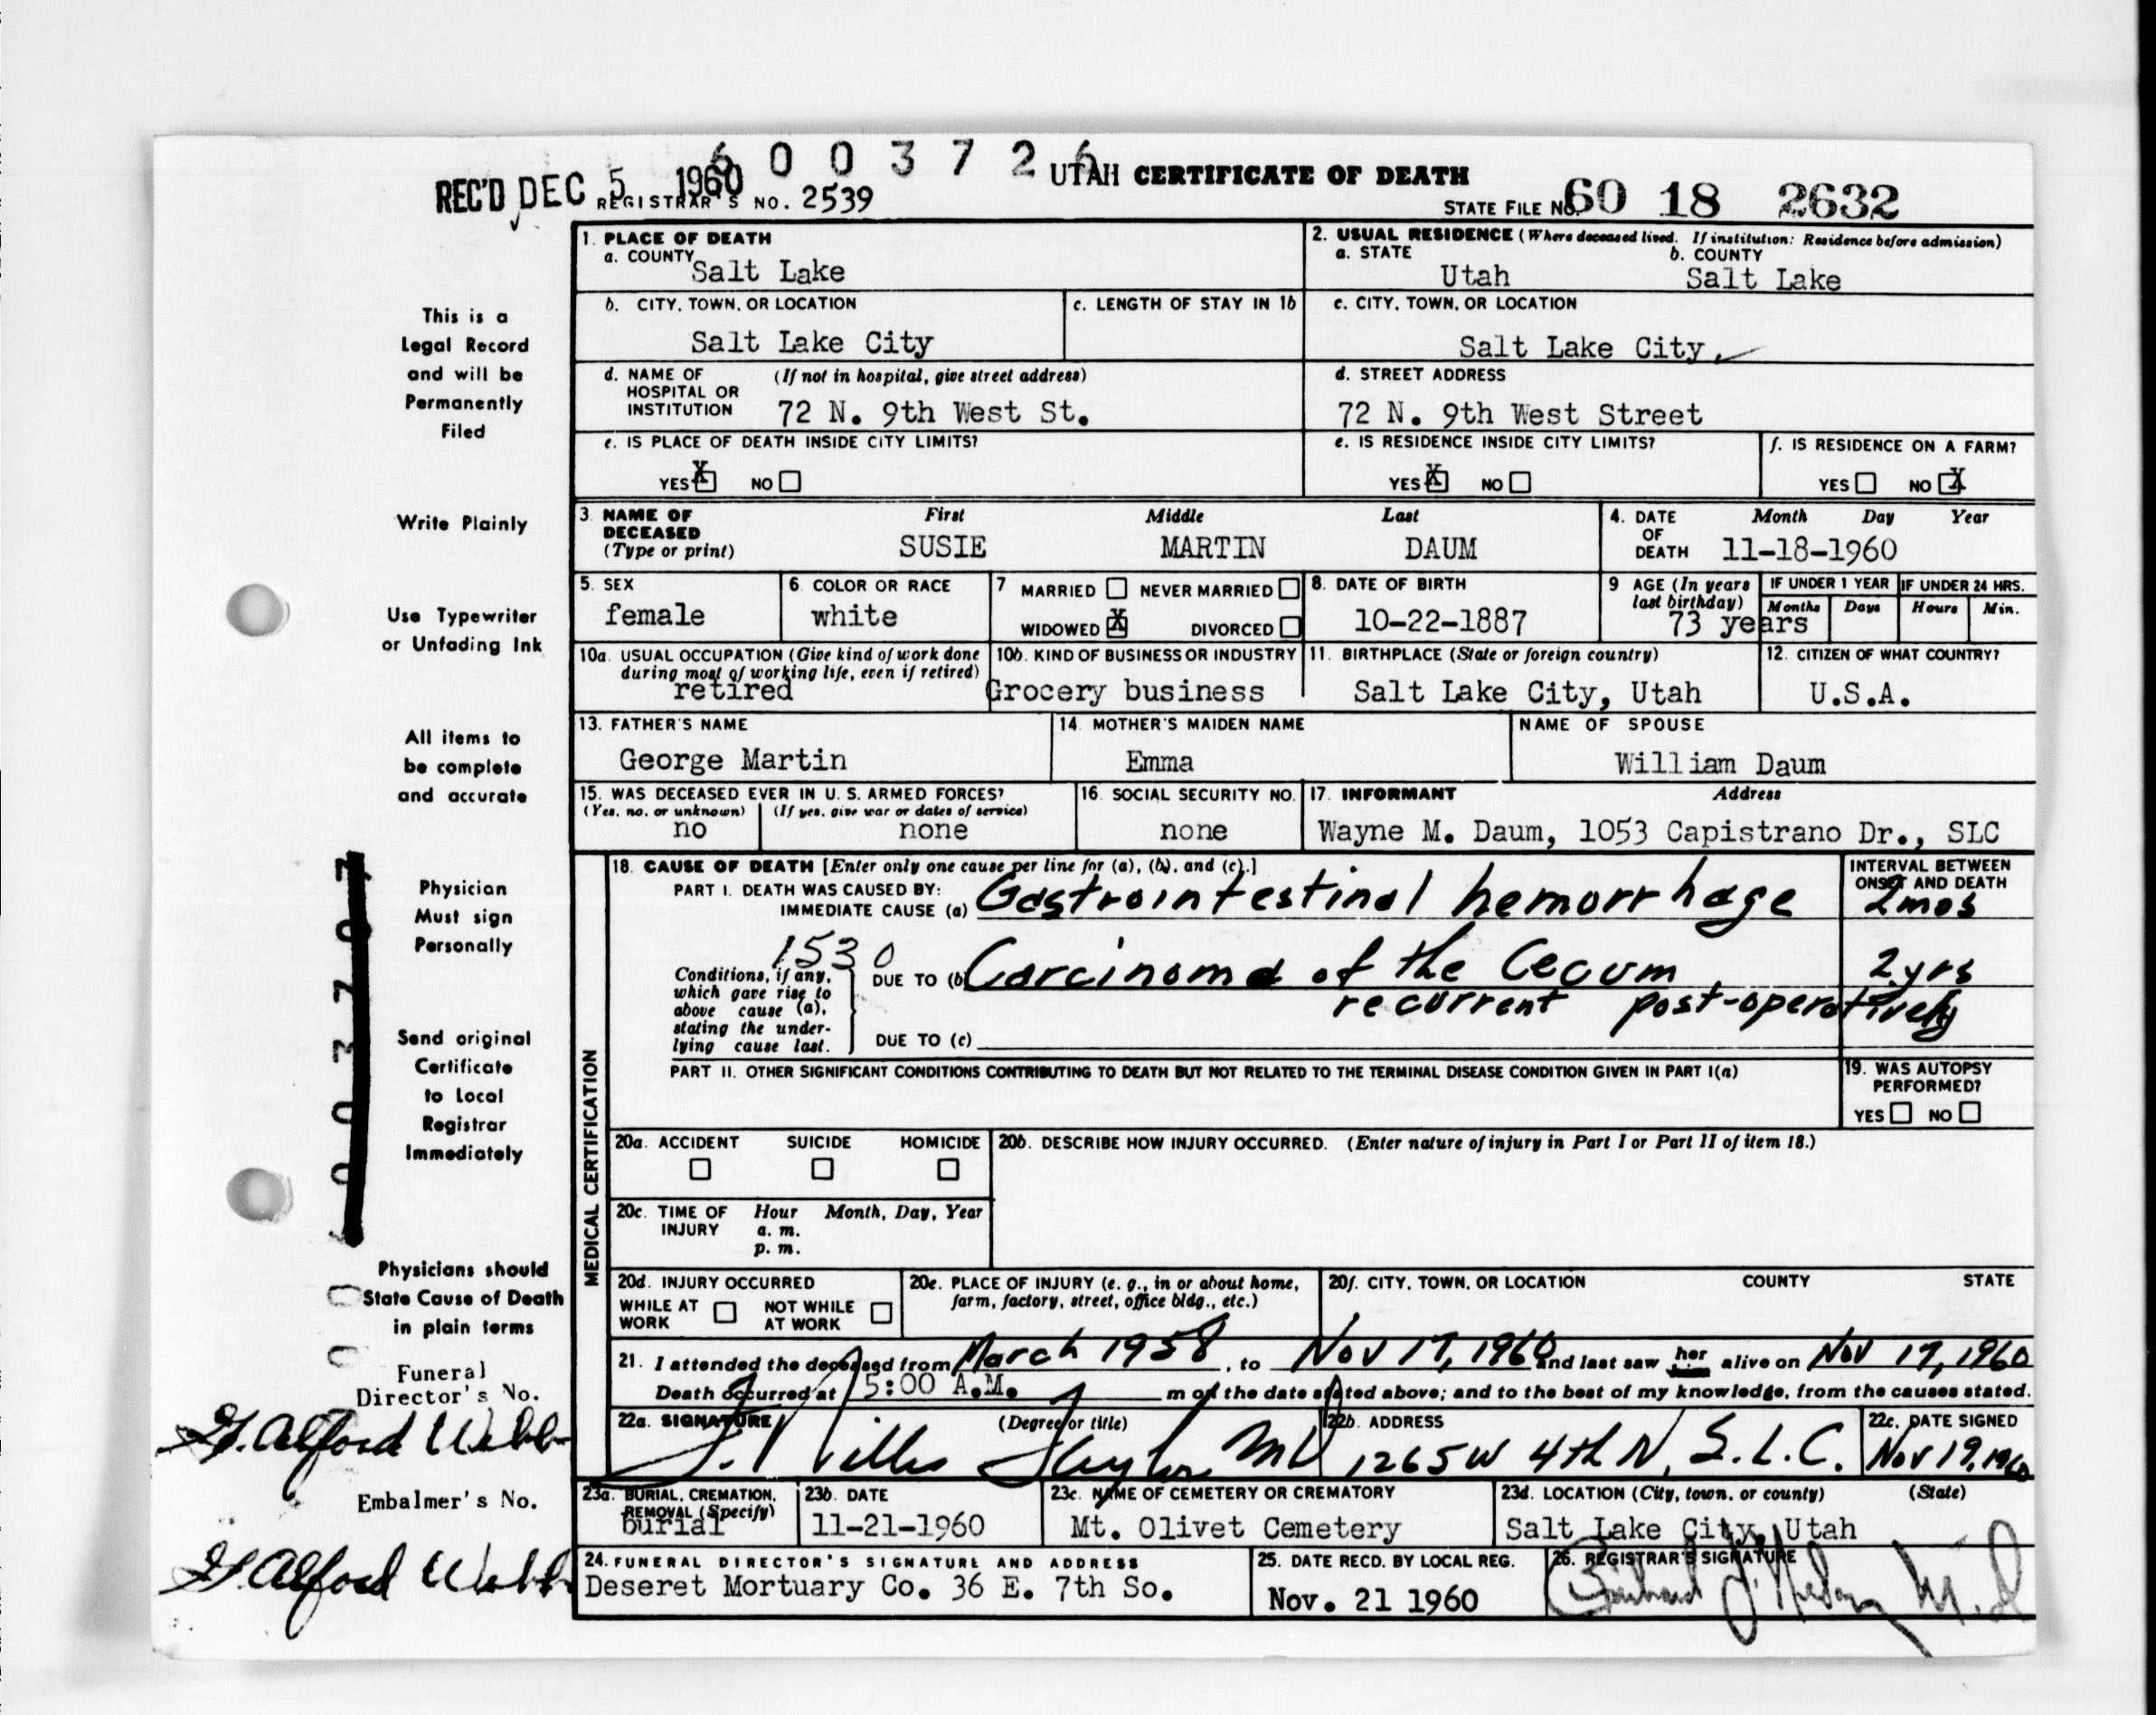 6 0 0 3 7 2 6
REC'D DEC 5 1960
REGISTRAR'S NO. 2539
UTAH CERTIFICATE OF DEATH
STATE FILE NO. 60 18 2632
This is a
Legal Record
and will be
Permanently
Filed
Write Plainly
Use Typewriter
or Unfading Ink
All items to
be complete
and accurate
Physician
Must sign
Personally
Send original
Certificate
to Local
Registrar
Immediately
Physicians should
State Cause of Death
in plain terms
Funeral
Director's No.
G. Alford Webb
Embalmer's No.
G. Alford Webb
1. PLACE OF DEATH
a. COUNTY
Salt Lake
2. USUAL RESIDENCE (Where deceased lived. If institution: Residence before admission)
a. STATE b. COUNTY
Utah Salt Lake
b. CITY, TOWN, OR LOCATION
Salt Lake City
c. LENGTH OF STAY IN 1b
c. CITY, TOWN, OR LOCATION
Salt Lake City
d. NAME OF (If not in hospital, give street address)
HOSPITAL OR
INSTITUTION 72 N. 9th West St.
d. STREET ADDRESS
72 N. 9th West Street
e. IS PLACE OF DEATH INSIDE CITY LIMITS?
YES X NO
e. IS RESIDENCE INSIDE CITY LIMITS?
YES X NO
f. IS RESIDENCE ON A FARM?
YES NO X
3. NAME OF First Middle Last
DECEASED
(Type or print) SUSIE MARTIN DAUM
4. DATE Month Day Year
OF
DEATH 11-18-1960
5. SEX
female
6. COLOR OR RACE
white
7 MARRIED NEVER MARRIED
WIDOWED X DIVORCED
8. DATE OF BIRTH
10-22-1887
9 AGE (In years
last birthday)
73 years
IF UNDER 1 YEAR IF UNDER 24 HRS.
Months Days Hours Min.
10a. USUAL OCCUPATION (Give kind of work done
during most of working life, even if retired)
retired
10b. KIND OF BUSINESS OR INDUSTRY
Grocery business
11. BIRTHPLACE (State or foreign country)
Salt Lake City, Utah
12. CITIZEN OF WHAT COUNTRY?
U.S.A.
13. FATHER'S NAME
George Martin
14. MOTHER'S MAIDEN NAME
Emma
NAME OF SPOUSE
William Daum
15. WAS DECEASED EVER IN U. S. ARMED FORCES?
(Yes, no, or unknown) (If yes, give war or dates of service)
no none
16. SOCIAL SECURITY NO.
none
17. INFORMANT Address
Wayne M. Daum, 1053 Capistrano Dr., SLC
MEDICAL CERTIFICATION
18. CAUSE OF DEATH [Enter only one cause per line for (a), (b), and (c).]
PART I. DEATH WAS CAUSED BY:
IMMEDIATE CAUSE (a) Gastrointestinal hemorrhage
INTERVAL BETWEEN
ONSET AND DEATH
2mos
1530
Conditions, if any,
which gave rise to
above cause (a),
stating the under-
lying cause last.
DUE TO (b) Carcinoma of the Cecum 2 yrs
recurrent post-operatively
DUE TO (c)
PART II. OTHER SIGNIFICANT CONDITIONS CONTRIBUTING TO DEATH BUT NOT RELATED TO THE TERMINAL DISEASE CONDITION GIVEN IN PART I(a)
19. WAS AUTOPSY
PERFORMED?
YES NO
20a. ACCIDENT SUICIDE HOMICIDE
20b. DESCRIBE HOW INJURY OCCURRED. (Enter nature of injury in Part I or Part II of item 18.)
20c. TIME OF Hour Month, Day, Year
INJURY a. m.
p. m.
20d. INJURY OCCURRED
WHILE AT NOT WHILE
WORK AT WORK
20e. PLACE OF INJURY (e. g., in or about home,
farm, factory, street, office bldg., etc.)
20f. CITY, TOWN, OR LOCATION COUNTY STATE
21. I attended the deceased from March 1958, to Nov 17, 1960 and last saw her alive on Nov 17, 1960
Death occurred at 5:00 A.M. m on the date stated above; and to the best of my knowledge, from the causes stated.
22a. SIGNATURE (Degree or title)
Taylor MD
22b. ADDRESS
1265 W 4th N, S.L.C.
22c. DATE SIGNED
Nov 19, 1960
23a. BURIAL, CREMATION,
REMOVAL (Specify)
burial
23b. DATE
11-21-1960
23c. NAME OF CEMETERY OR CREMATORY
Mt. Olivet Cemetery
23d. LOCATION (City, town, or county) (State)
Salt Lake City, Utah
24. FUNERAL DIRECTOR'S SIGNATURE AND ADDRESS
Deseret Mortuary Co. 36 E. 7th So.
25. DATE RECD. BY LOCAL REG.
Nov. 21 1960
26. REGISTRAR'S SIGNATURE